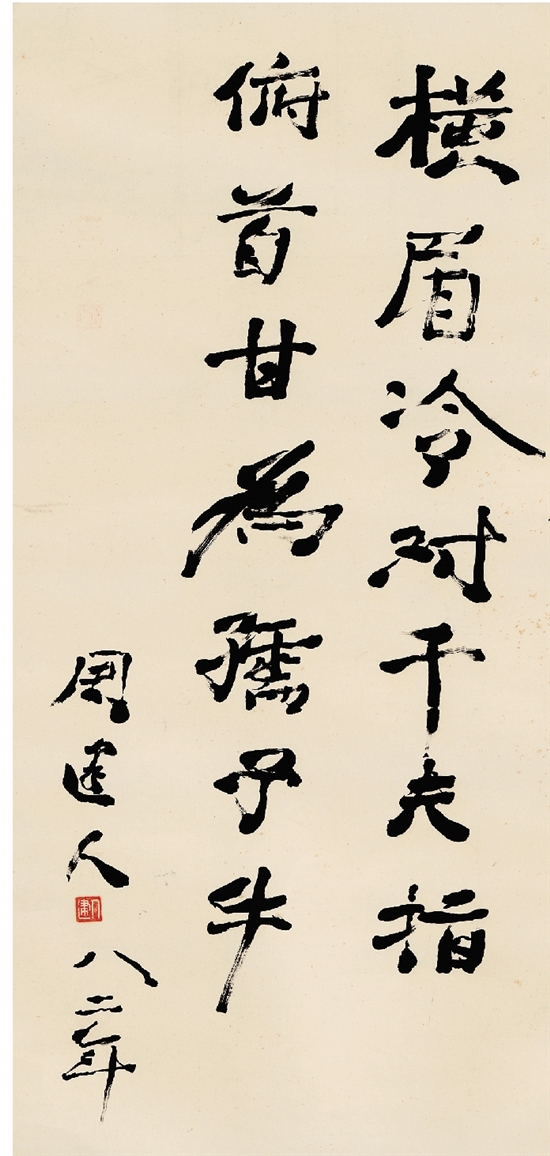 横眉冷对千夫指
俯首甘為孺子牛
周建人 八二年